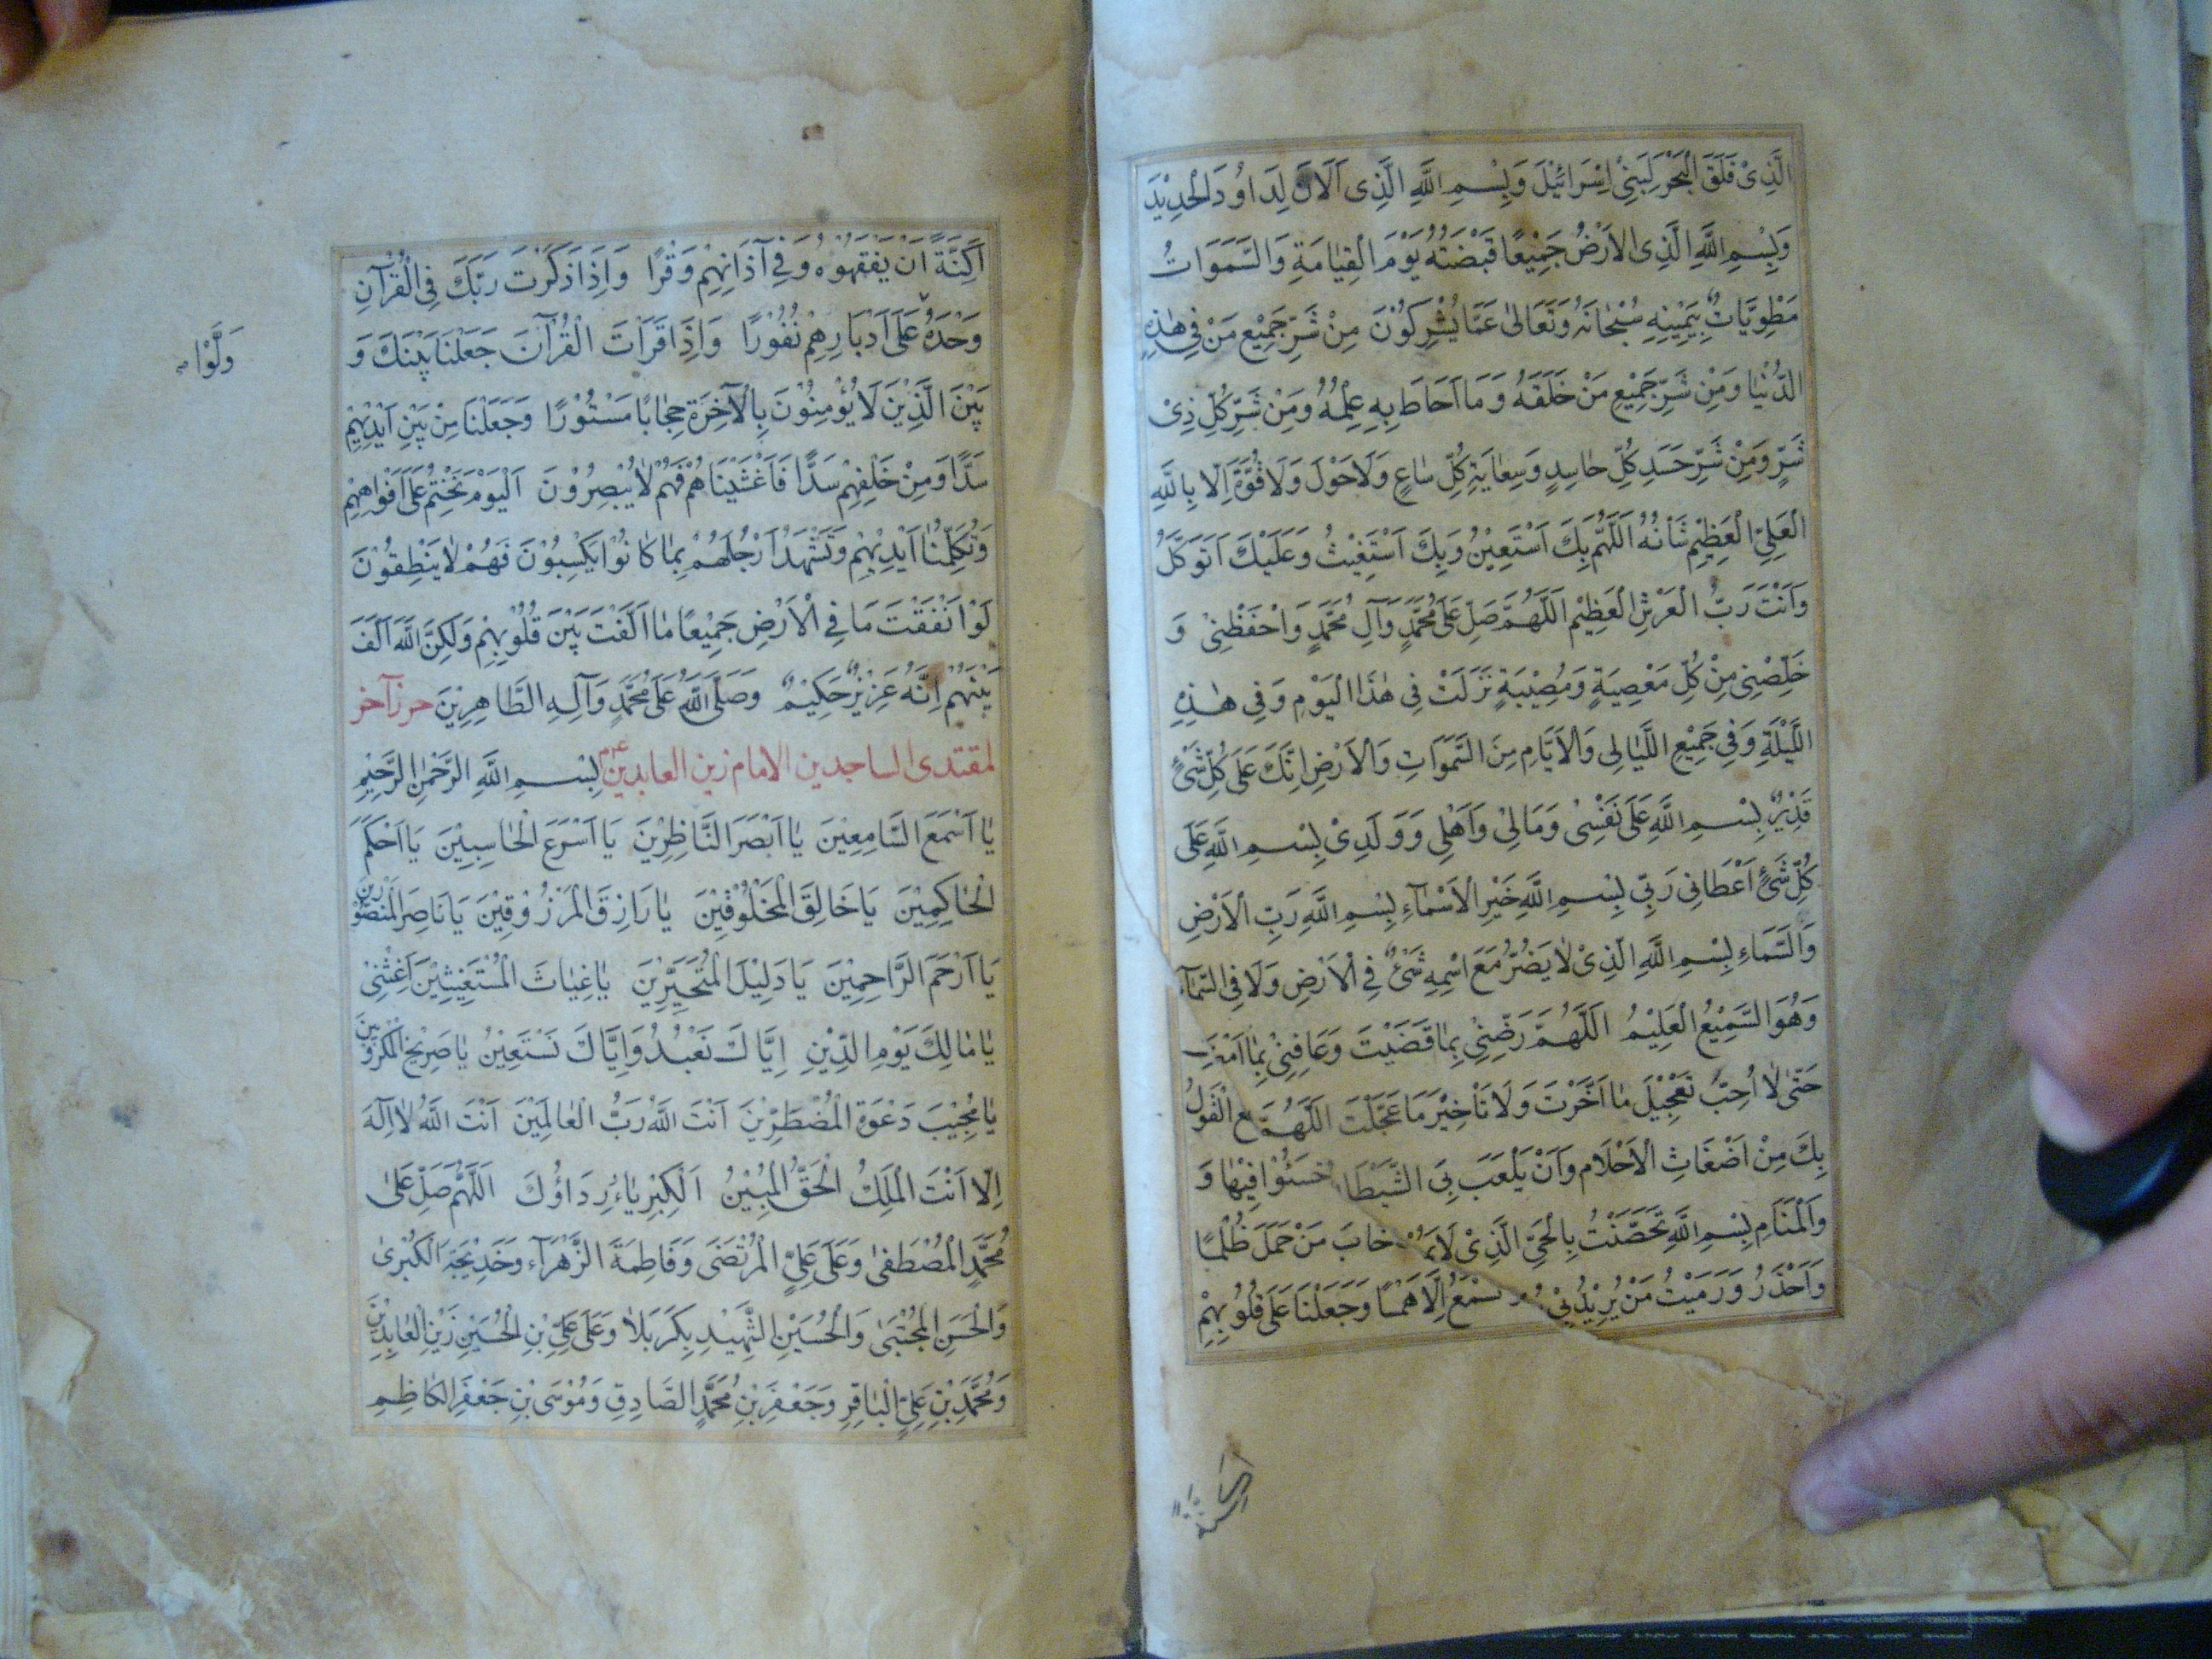 الَّذِیْ فَلَقَ الْبَحْرَ لِبَنِیْ اِسْرَائِیْلَ وَبِسْمِ اللَّهِ الَّذِی اَلَانَ لِدَاوُدَ الْحَدِیْدَ
وَبِسْمِ اللَّهِ الَّذِی الاَرْضُ جَمِیْعًا قَبْضَتُهُ یَوْمَ الْقِیَامَةِ وَالسَّمَوَاتُ
مَطْوِیَّاتٌ بِیَمِیْنِهِ سُبْحَانَهُ وَتَعَالیٰ عَمَّا یُشْرِکُوْنَ مِنْ شَرِّ جَمِیْعِ مَنْ فِی هٰذِهِ
الدُّنْیَا وَمِنْ شَرِّ جَمِیْعِ مَنْ خَلَقَهُ وَمَا اَحَاطَ بِهِ عِلْمُهُ وَمِنْ شَرِّ کُلِّ ذِیْ
شَرٍّ وَمِنْ شَرِّ حَسَدِ کُلِّ حَاسِدٍ وَسِعَایَةِ کُلِّ سَاعٍ وَلَا حَوْلَ وَلَا قُوَّةَ اِلَّا بِاللَّهِ
الْعَلِیِّ الْعَظِیْمِ شَاْنُهُ اَللَّهُمَّ بِكَ اَسْتَعِیْنُ وَبِكَ اَسْتَغِیْثُ وَعَلَیْكَ اَتَوَکَّلُ
وَاَنْتَ رَبُّ الْعَرْشِ الْعَظِیْمِ اَللَّهُمَّ صَلِّ عَلیٰ مُحَمَّدٍ وَآلِ مُحَمَّدٍ وَاحْفَظْنِیْ وَ
خَلِّصْنِی مِنْ کُلِّ مَعْصِیَةٍ وَمُصِیْبَةٍ نَزَلَتْ فِی هٰذَا الْیَوْمِ وَفِی هٰذِهِ
اللَّیْلَةِ وَفِی جَمِیْعِ اللَّیَالِی وَالاَیَّامِ مِنَ السَّمَوَاتِ وَالاَرْضِ اِنَّكَ عَلَی کُلِّ شَیْءٍ
قَدِیْرٌ بِسْمِ اللَّهِ عَلَی نَفْسِیْ وَمَالِیْ وَاَهْلِی وَوَلَدِیْ بِسْمِ اللَّهِ عَلَی
کُلِّ شَیْءٍ اَعْطَانِی رَبِّی بِسْمِ اللَّهِ خَیْرِ الاَسْمَآءِ بِسْمِ اللَّهِ رَبِّ الاَرْضِ
وَالسَّمَاءِ بِسْمِ اللَّهِ الَّذِیْ لَا یَضُرُّ مَعَ اسْمِهِ شَیْءٌ فِی الْاَرْضِ وَلَا فِی السَّمَآءِ
وَهُوَ السَّمِیْعُ الْعَلِیْمُ اَللَّهُمَّ رَضِّنِیْ بِمَا قَضَیْتَ وَعَافِنِیْ بِمَا
حَتّٰی لَا اُحِبَّ تَعْجِیْلَ مَا اَخَّرْتَ وَلَا تَاْخِیْرَ مَا عَجَّلْتَ اَللَّهُمَّ
بِكَ مِنْ اَضْغَاثِ الْاَحْلَامِ وَاَنْ یَلْعَبَ بِیَ الشَّیْطَا فِیْهَا وَ
وَالْمَنَامِ بِسْمِ اللَّهِ تَحَصَّنْتُ بِالْحَیِّ الَّذِیْ لَا خَابَ مَنْ حَمَلَ ظُلْمًا
وَاَحْذَرُ وَرَمَیْتُ مَنْ یُرِیْدُنِیْ تَسْمَعُ اِلَّا هَمْسًا وَجَعَلْنَا عَلَی قُلُوْبِهِمْ
اَکِنَّةً
اَکِنَّةً اَنْ یَفْقَهُوْهُ وَفِی آذَانِهِمْ وَقْرًا وَاِذَا ذَکَرْتَ رَبَّكَ فِی الْقُرْآنِ
وَحْدَهُ عَلَی اَدْبَارِهِمْ نُفُوْرًا وَاِذَا قَرَاْتَ الْقُرْآنَ جَعَلْنَا بَیْنَكَ وَ
وَلَّوْا
بَیْنَ الَّذِیْنَ لَا یُؤْمِنُوْنَ بِالْآخِرَةِ حِجَابًا مَسْتُوْرًا وَجَعَلْنَا مِنْ بَیْنِ اَیْدِیْهِمْ
سَدًّا وَمِنْ خَلْفِهِمْ سَدًّا فَاَغْشَیْنَاهُمْ فَهُمْ لَا یُبْصِرُوْنَ اَلْیَوْمَ نَخْتِمُ عَلَی اَفْوَاهِهِمْ
وَتُکَلِّمُنَا اَیْدِیْهِمْ وَتَشْهَدُ اَرْجُلُهُمْ بِمَا کَانُوْا یَکْسِبُوْنَ فَهُمْ لَا یَنْطِقُوْنَ
لَوْ اَنْفَقْتَ مَا فِی الْاَرْضِ جَمِیْعًا مَا اَلَّفْتَ بَیْنَ قُلُوْبِهِمْ وَلَکِنَّ اللَّهَ اَلَّفَ
بَیْنَهُمْ اِنَّهُ عَزِیْزٌ حَکِیْمٌ وَصَلَّی اللَّهُ عَلَی مُحَمَّدٍ وَآلِهِ الطَّاهِرِیْنَ حرز آخر
لمقتدی الساجدین الامام زین العابدین ع م بِسْمِ اللَّهِ الرَّحْمٰنِ الرَّحِیْمِ
یَا اَسْمَعَ السَّامِعِیْنَ یَا اَبْصَرَ النَّاظِرِیْنَ یَا اَسْرَعَ الْحَاسِبِیْنَ یَا اَحْکَمَ
الْحَاکِمِیْنَ یَا خَالِقَ الْمَخْلُوْقِیْنَ یَا رَازِقَ الْمَرْزُوْقِیْنَ یَا نَاصِرَ الْمَنْصُوْرِیْنَ
یَا اَرْحَمَ الرَّاحِمِیْنَ یَا دَلِیْلَ الْمُتَحَیِّرِیْنَ یَا غِیَاثَ الْمُسْتَغِیْثِیْنَ اَغِثْنِیْ
یَا مَالِكَ یَوْمِ الدِّیْنِ اِیَّاكَ نَعْبُدُ وَاِیَّاكَ نَسْتَعِیْنُ یَا صَرِیْخَ الْمَکْرُوْبِیْنَ
یَا مُجِیْبَ دَعْوَةِ الْمُضْطَرِّیْنَ اَنْتَ اللَّهُ رَبُّ الْعَالَمِیْنَ اَنْتَ اللَّهُ لَا اِلٰهَ
اِلَّا اَنْتَ الْمَلِكُ الْحَقُّ الْمُبِیْنُ اَلْکِبْرِیَاءُ رِدَاؤُكَ اَللَّهُمَّ صَلِّ عَلیٰ
مُحَمَّدٍ الْمُصْطَفیٰ وَعَلَی عَلِیٍّ الْمُرْتَضَی وَفَاطِمَةَ الزَّهْرَآءِ وَخَدِیْجَةَ الْکُبْریٰ
وَالْحَسَنِ الْمُجْتَبیٰ وَالْحُسَیْنِ الشَّهِیْدِ بِکَرْبَلَا وَعَلَی عَلِیِّ بْنِ الْحُسَیْنِ زَیْنِ الْعَابِدِیْنَ
وَمُحَمَّدِ بْنِ عَلِیٍّ الْبَاقِرِ وَجَعْفَرِ بْنِ مُحَمَّدٍ الصَّادِقِ وَمُوْسَی بْنِ جَعْفَرِ الْکَاظِمِ